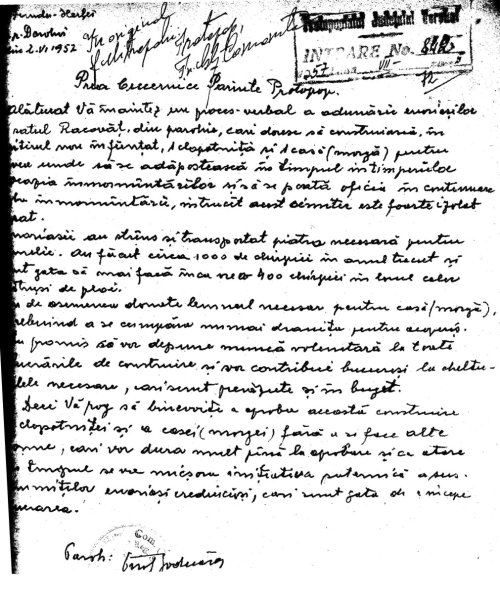 2.VI 1952
În original
Protopop.
Protopopiatul Județului
INTRARE No.
1957 VII
Prea Cucernice Părinte Protopop.
Alăturat Vă înaintez un proces-verbal a adunării enoriașilor
satul Racovăț, din parohie, cari doresc să construiască, în
nou înființat, 1 clopotniță și 1 casă (morgă) pentru
unde să se adăpostească în timpul intemperiilor
ocazia înmormântărilor și să se poată oficia în continuare
înmormântără, întrucît acest cimitir este foarte izolat
sat.
au strîns și transportat piatra necesară pentru
Au făcut circa 1000 de chirpici în anul trecut și
gata să mai facă încă 400 chirpici în locul celor
de ploi.
de asemenea donete lemnul necesar pentru casă (morgă),
trebuind a se cumpăra numai dranița pentru acoperiș.
promis să vor depune muncă voluntară la toate
lucrările de construire și vor contribui bucuroși la cheltu-
lele necesare, cari sunt prevăzute și în buget.
Deci Vă rog să binevoiți a aproba această construire
clopotniței și a casei (morgei) fără a se face alte
cari vor dura mult pînă la aprobare și ca atare
timpul se va micșora inițiativa puternică a sus-
numiților enoriași credincioși, cari sunt gata de a începe
lucrarea.
Paroh: